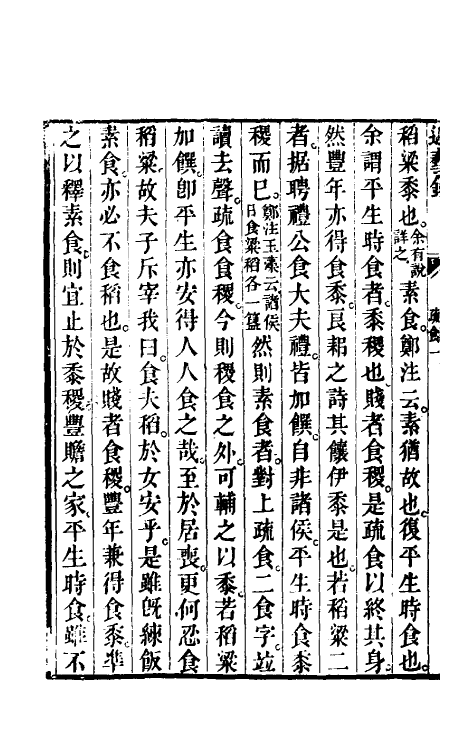 通藝錄 疏食 一
稻粱黍也余有說詳之素食鄭注云素猶故也復平生時食也
余謂平生時食者黍稷也賤者食稷是疏食以終其身
然豐年亦得食黍良耜之詩其饟伊黍是也若稻粱二
者据聘禮公食大夫禮皆加饌自非諸侯平生時食黍
稷而已鄭注玉藻云諸侯日食粱稻各一簋然則素食者對上疏食二食字竝
讀去聲疏食食稷今則稷食之外可輔之以黍若稻粱
加饌卽平生亦安得人人食之哉至於居喪更何忍食
稻粱故夫子斥宰我曰食夫稻於女安乎是雖旣練飯
素食亦必不食稻也是故賤者食稷豐年兼得食黍準
之以釋素食則宜止於黍稷豐贍之家平生時食雖不